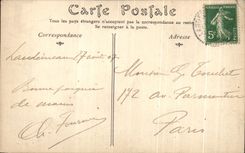 Carte Postale
Tous les pays étrangers n'acceptent pas la correspondance au recto
Se renseigner à la poste
Correspondance
Adresse
17 août 07
Monsieur G Touchet
Bonne poignée
de mains
172 av. Parmentier
Paris
5c